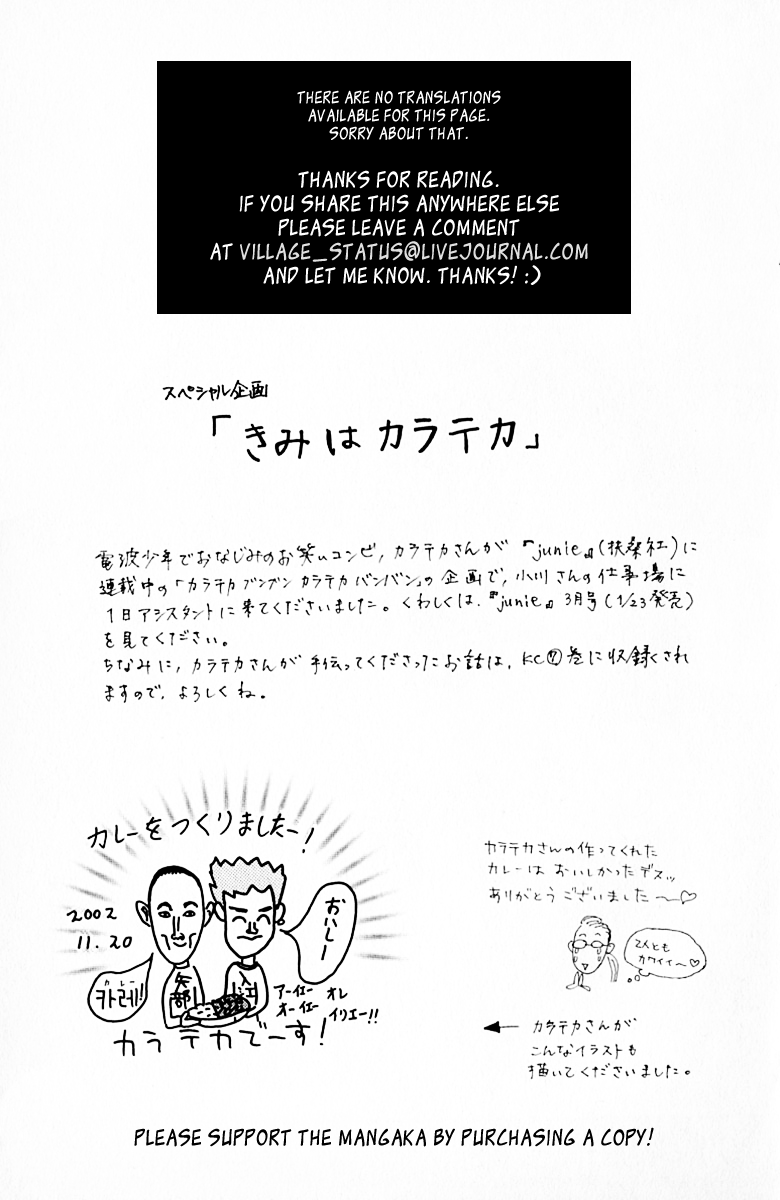 THERE ARE NO TRANSLATIONS
AVAILABLE FOR THIS PAGE.
SORRY ABOUT THAT.
THANKS FOR READING.
IF YOU SHARE THIS ANYWHERE ELSE
PLEASE LEAVE A COMMENT
AT VILLAGE_STATUS@LIVEJOURNAL.COM
AND LET ME KNOW. THANKS! :)
スペシャル企画
「きみはカラテカ」
電波少年でおなじみのお笑いコンビ, カラテカさんが『junie』(扶桑社)に
連載中の「カラテカブンブンカラテカバンバン」の企画で, 小川さんの仕事場に
1日アシスタントに来てくださいました。くわしくは,『junie』3月号(1/23発売)
を見てください。
ちなみに, カラテカさんが手伝ってくださったお話は, KC⑦巻に収録され
ますので, よろしくね。
カレーをつくりましたー!
2002
11.20
カレー
카레!!
矢部
入江
おいしー
アーイエー
オーイエー
オレ
イリエー!!
カラテカでーす!
カラテカさんの作ってくれた
カレーはおいしかったデスッ
ありがとうございました〜♡
2人とも
カワイイ〜♡
← カラテカさんが
こんなイラストも
描いてくださいました。
PLEASE SUPPORT THE MANGAKA BY PURCHASING A COPY!